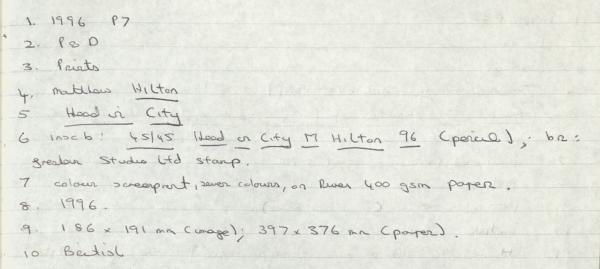 1. 1996 P7
2. P & D
3. Prints
4. Matthew Hilton
5 Head in City
6 insc b: 45/45 Head in City M Hilton 96 (pencil); br:
Gresham Studio Ltd stamp.
7 colour screenprint, seven colours, on Rives 400 gsm paper.
8. 1996.
9. 186 x 191 mm (image); 397 x 376 mm (paper).
10 British